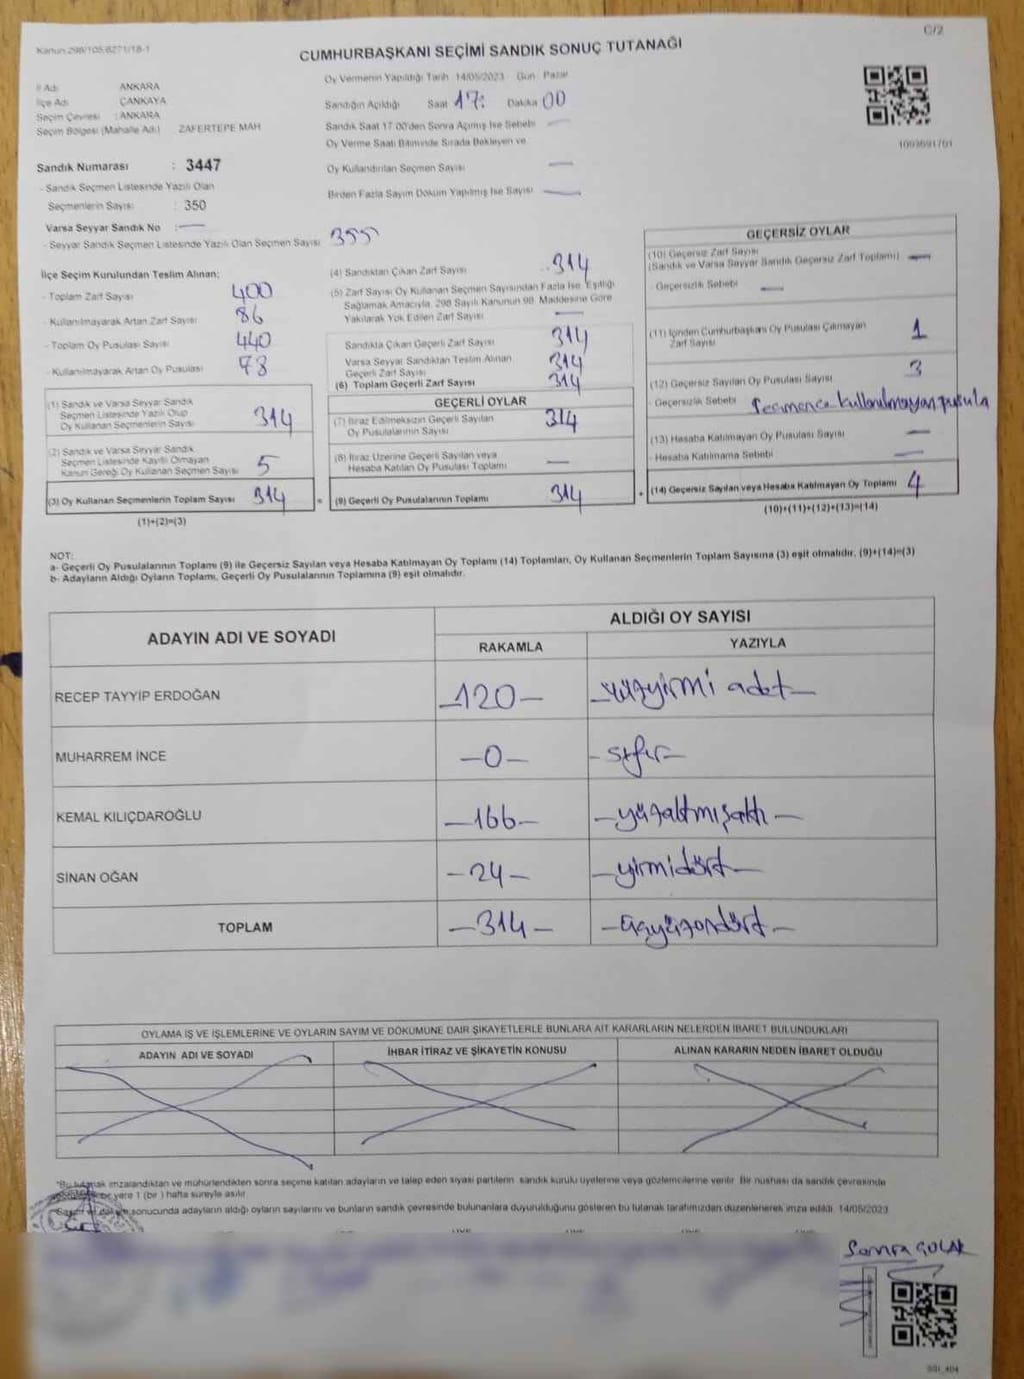 C/2
Kanun 298/105,6271/18-1
CUMHURBAŞKANI SEÇİMİ SANDIK SONUÇ TUTANAĞI
İl Adı ANKARA
İlçe Adı ÇANKAYA
Seçim Çevresi : ANKARA
Seçim Bölgesi (Mahalle Adı) ZAFERTEPE MAH
Sandık Numarası : 3447
- Sandık Seçmen Listesinde Yazılı Olan
Seçmenlerin Sayısı : 350
Varsa Seyyar Sandık No : —
- Seyyar Sandık Seçmen Listesinde Yazılı Olan Seçmen Sayısı 355
Oy Vermenin Yapıldığı Tarih 14/05/2023 Gün Pazar
Sandığın Açıldığı Saat 17: Dakika 00
Sandık Saat 17.00'den Sonra Açılmış İse Sebebi —
Oy Verme Saati Bitiminde Sırada Bekleyen ve
Oy Kullandırılan Seçmen Sayısı —
Birden Fazla Sayım Döküm Yapılmış İse Sayısı —
1093691701
İlçe Seçim Kurulundan Teslim Alınan;
- Toplam Zarf Sayısı 400
- Kullanılmayarak Artan Zarf Sayısı 86
- Toplam Oy Pusulası Sayısı 440
- Kullanılmayarak Artan Oy Pusulası 78
(1) Sandık ve Varsa Seyyar Sandık
Seçmen Listesinde Yazılı Olup
Oy Kullanan Seçmenlerin Sayısı 314
(2) Sandık ve Varsa Seyyar Sandık
Seçmen Listesinde Kayıtlı Olmayan
Kanun Gereği Oy Kullanan Seçmen Sayısı 5
(3) Oy Kullanan Seçmenlerin Toplam Sayısı 314 =
(1)+(2)=(3)
(4) Sandıktan Çıkan Zarf Sayısı 314
(5) Zarf Sayısı Oy Kullanan Seçmen Sayısından Fazla İse, Eşitliği
Sağlamak Amacıyla, 298 Sayılı Kanunun 98. Maddesine Göre
Yakılarak Yok Edilen Zarf Sayısı —
Sandıkta Çıkan Geçerli Zarf Sayısı 314
Varsa Seyyar Sandıktan Teslim Alınan
Geçerli Zarf Sayısı 314
(6) Toplam Geçerli Zarf Sayısı 314
GEÇERLİ OYLAR
(7) İtiraz Edilmeksizin Geçerli Sayılan
Oy Pusulalarının Sayısı 314
(8) İtiraz Üzerine Geçerli Sayılan veya
Hesaba Katılan Oy Pusulası Toplamı —
(9) Geçerli Oy Pusulalarının Toplamı 314 +
GEÇERSİZ OYLAR
(10) Geçersiz Zarf Sayısı
(Sandık ve Varsa Seyyar Sandık Geçersiz Zarf Toplamı) —
- Geçersizlik Sebebi —
(11) İçinden Cumhurbaşkanı Oy Pusulası Çıkmayan
Zarf Sayısı 1
(12) Geçersiz Sayılan Oy Pusulası Sayısı 3
- Geçersizlik Sebebi Seçmence kullanılmayan pusula
(13) Hesaba Katılmayan Oy Pusulası Sayısı —
- Hesaba Katılmama Sebebi —
(14) Geçersiz Sayılan veya Hesaba Katılmayan Oy Toplamı 4
(10)+(11)+(12)+(13)=(14)
NOT:
a- Geçerli Oy Pusulalarının Toplamı (9) ile Geçersiz Sayılan veya Hesaba Katılmayan Oy Toplamı (14) Toplamları, Oy Kullanan Seçmenlerin Toplam Sayısına (3) eşit olmalıdır. (9)+(14)=(3)
b- Adayların Aldığı Oyların Toplamı, Geçerli Oy Pusulalarının Toplamına (9) eşit olmalıdır.
ADAYIN ADI VE SOYADI ALDIĞI OY SAYISI
RAKAMLA YAZIYLA
RECEP TAYYİP ERDOĞAN —120— —yüzyirmi adet—
MUHARREM İNCE —0— —sıfır—
KEMAL KILIÇDAROĞLU —166— —yüzaltmışaltı—
SİNAN OĞAN —24— —yirmidört—
TOPLAM —314— —üçyüzondört—
OYLAMA İŞ VE İŞLEMLERİNE VE OYLARIN SAYIM VE DÖKÜMÜNE DAİR ŞİKAYETLERLE BUNLARA AİT KARARLARIN NELERDEN İBARET BULUNDUKLARI
ADAYIN ADI VE SOYADI İHBAR İTİRAZ VE ŞİKAYETİN KONUSU ALINAN KARARIN NEDEN İBARET OLDUĞU
*Bu tutanak imzalandıktan ve mühürlendikten sonra seçime katılan adayların ve talep eden siyasi partilerin sandık kurulu üyelerine veya gözlemcilerine verilir. Bir nüshası da sandık çevresinde
bir yere 1 (bir) hafta süreyle asılır.
sonucunda adayların aldığı oyların sayılarını ve bunların sandık çevresinde bulunanlara duyurulduğunu gösteren bu tutanak tarafımızdan düzenlenerek imza edildi. 14/05/2023